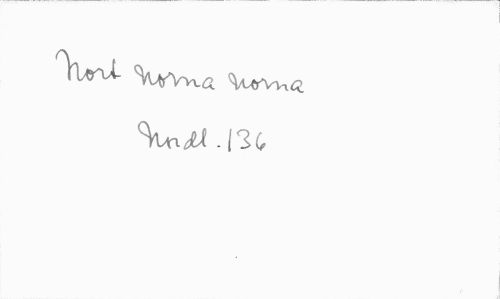 Nort Norna Norna
Nordl. 136